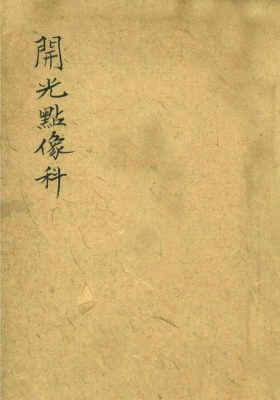 開光點像科